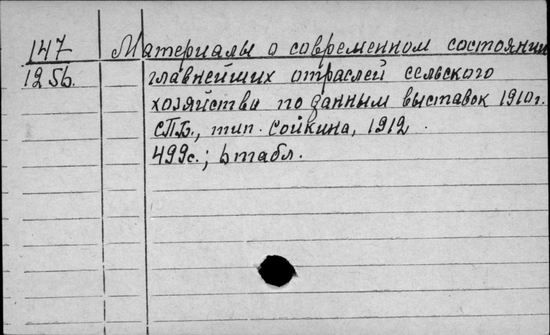 147 Материалы о современном состоянии
125б. главнейших отраслей сельского
хозяйства по данным выставок 1910г.
СПБ., тип. Сойкина, 1912.
499с.; 6 табл.